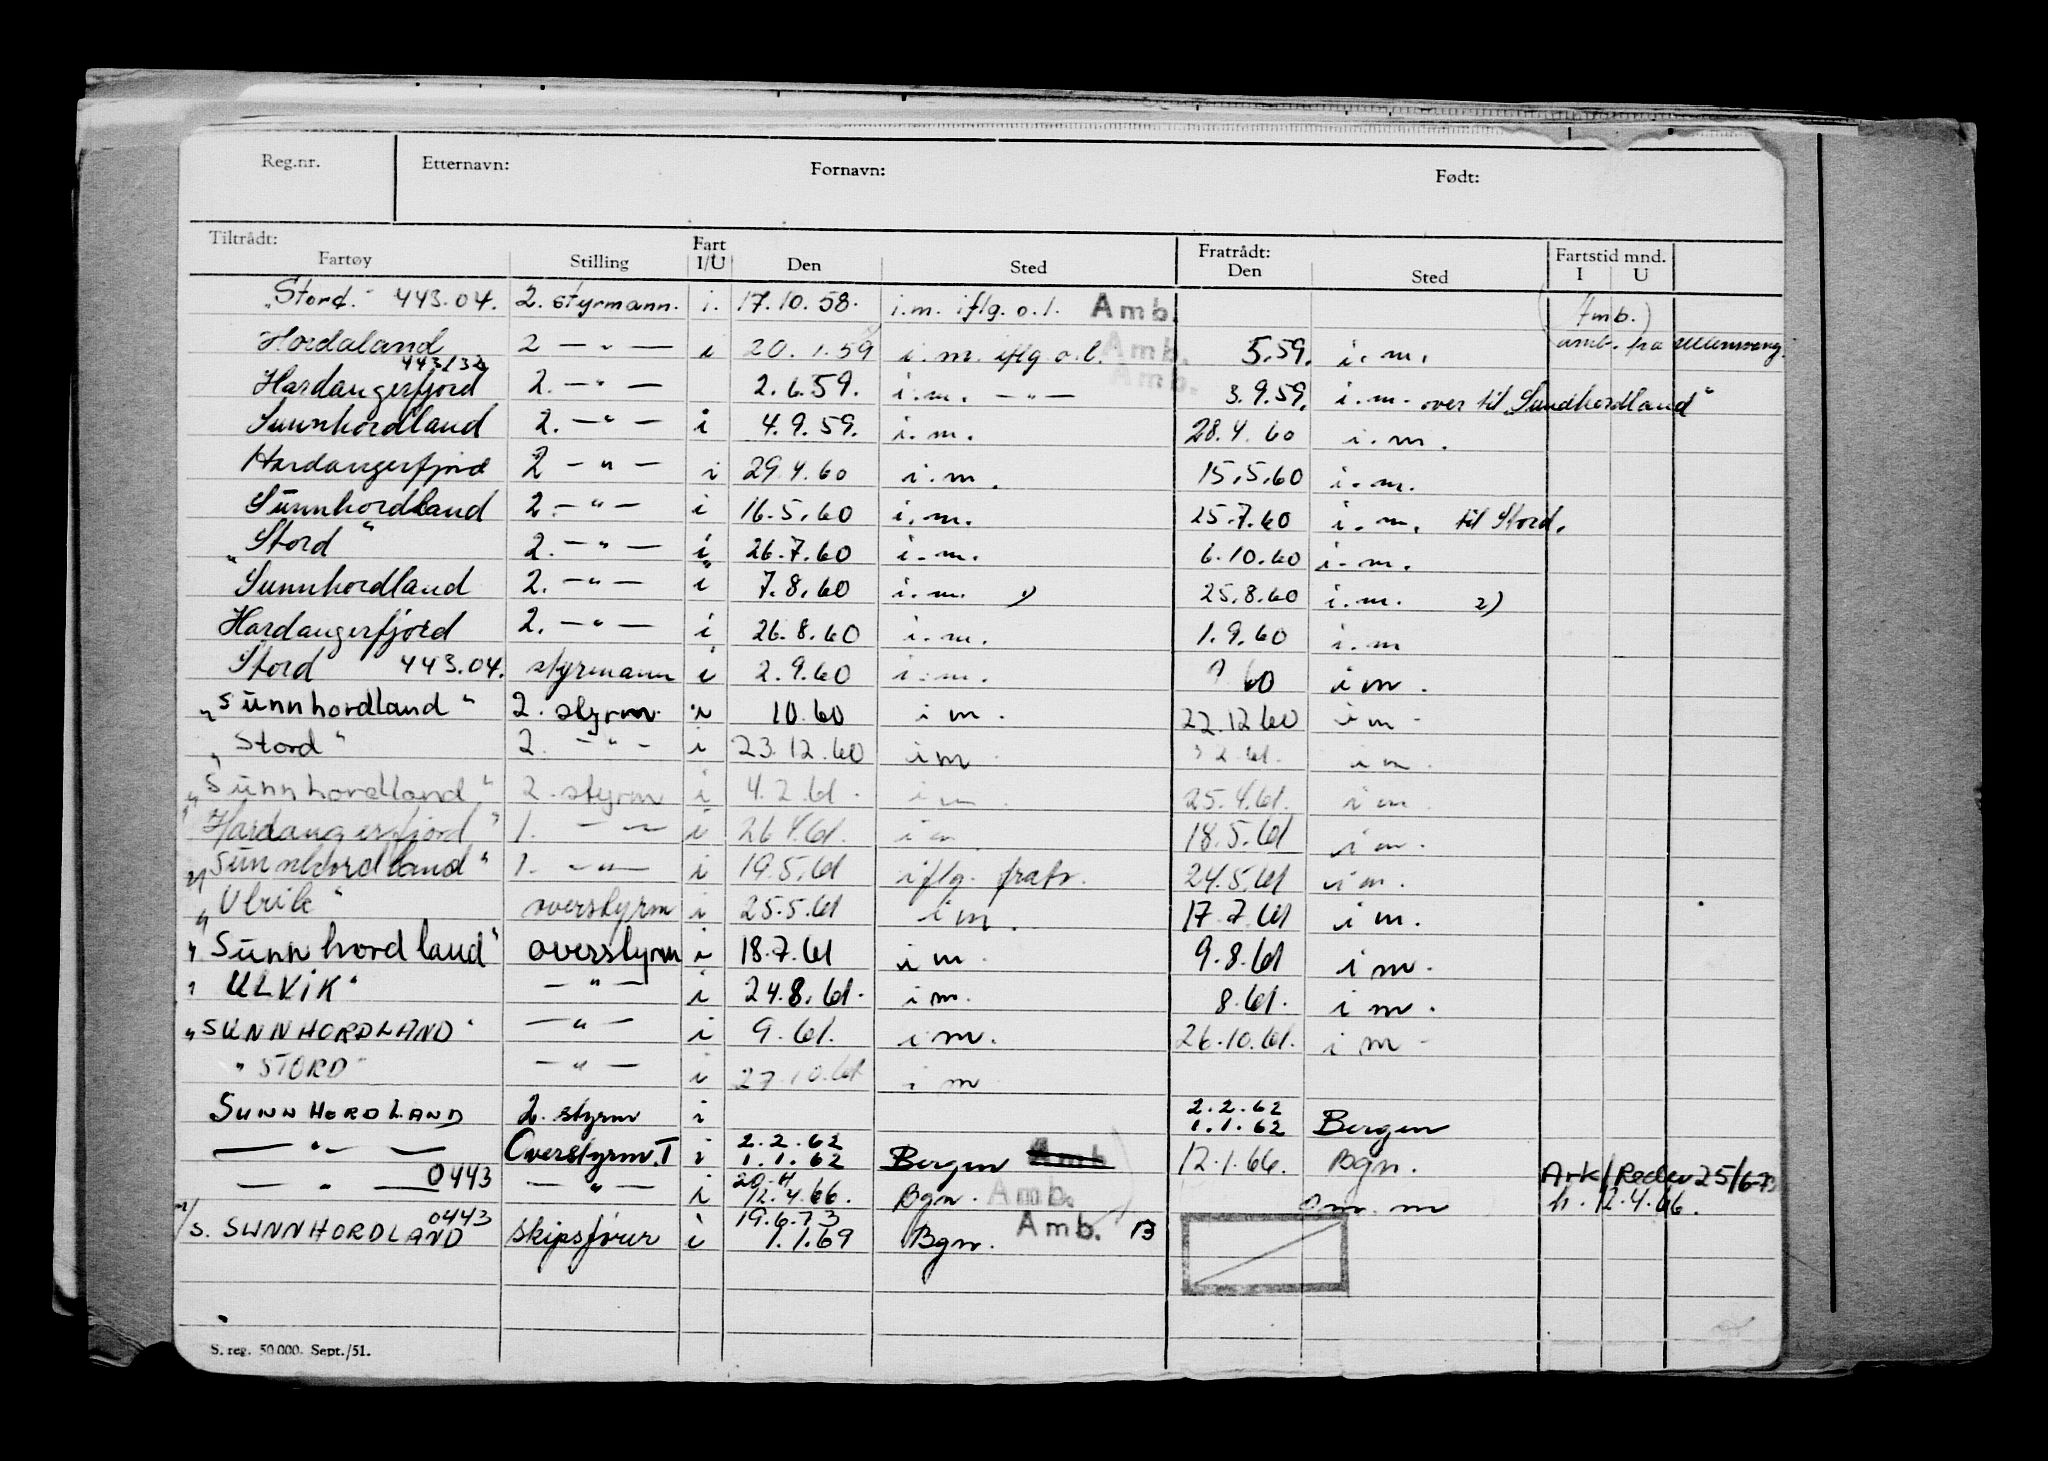 Reg.nr. Etternavn: Fornavn: Født:
Tiltrådt: Fartøy Stilling Fart I/U Den Sted Fratrådt: Den Sted Fartstid mnd. I U
"Stord" 443.04. 2. styrmann. i. 17.10.58. i.m. iflg. o.l. Amb. (Amb.)
Hordaland 2 — " — i 20.1.59 i.m. iflg o.l. Amb. 5.59. i.m. amb. fra
443/32
Hardangerfjord 2. — " — 2.6.59. i.m. — " — Amb. 3.9.59. i.m. over til "Sundhordland"
Sunnhordland 2. — " — i 4.9.59. i.m. 28.4.60 i.m.
Hardangerfjord 2 — " — i 29.4.60 i.m. 15.5.60 i.m.
Sunnhordland 2. — " — i 16.5.60 i.m. 25.7.60 i.m. til Stord.
"Stord" 2. — " — i 26.7.60 i.m. 6.10.60 i.m.
"Sunnhordland 2. — " — i 7.8.60 i.m. 1) 25.8.60 i.m. 2)
Hardangerfjord 2. — " — i 26.8.60 i.m. 1.9.60 i.m
Stord 443.04. styrmann i 2.9.60 i.m. ? 60 i m.
"Sunnhordland" 2. styrm. i 10.60 i m. 22.12.60 i m.
"Stord" 2. — " — i 23.12.60 i m 2.61. i m.
"Sunnhordland" 2. styrm i 4.2.61. i m 25.4.61. i m.
"Hardangerfjord" 1. — " — i 26.4.61. i m 18.5.61 i m.
"Sunnhordland" 1. — " — i 19.5.61 iflg. fratr. 24.5.61 i m.
"Ulvik" overstyrm i 25.5.61 i m. 17.7.61 i m.
"Sunnhordland" overstyrm i 18.7.61 i m. 9.8.61 i m.
"ULVIK" — " — i 24.8.61. i m. 8.61. i m.
"SUNNHORDLAND" — " — i 9.61. i m. 26.10.61. i m.
"STORD" — " — i 27.10.61 i m
SUNNHORDLAND 2. styrm i 2.2.62 1.1.62 Bergen
— " — Overstyrm. I i 2.2.62 1.1.62 Bergen Amb 12.1.66. Bgn.
— " — 0443 — " — i 20.4 12.4.66. Bgn. Amb. m Ark/Reder 25/6-73 h. 12.4.66.
M/S. SUNNHORDLAND 0443 skipsfører i 19.6.73 1.1.69 Bgn. Amb. 13
S. reg. 50.000. Sept./51.